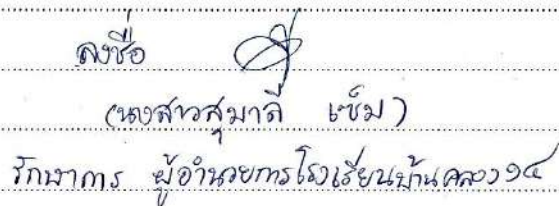 ลงชื่อ
(นางสาวสุมาลี เซ็ม)
รักษาการ ผู้อำนวยการโรงเรียนบ้านคลอง ๑๔